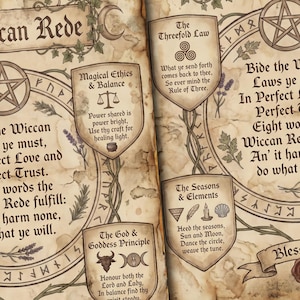 can Rede
Magical Ethics
& Balance
Power shared is
power bright,
Use thy craft for
healing light.
he Wiccan
ye must,
ect Love and
ect Trust.
words the
Rede fulfill:
harm none,
hat ye will.
The God &
Goddess Principle
Honour both the
Lord and Lady,
In balance find thy
The
Threefold Law
What ye send forth
comes back to thee,
So ever mind the
Rule of Three.
Bide the W
Laws ye
In Perfect L
Perfect
Eight wo
Wiccan Re
An' it ha
do what
The Seasons
& Elements
Heed the seasons,
Sun and Moon,
Dance the circle,
weave the tune.
Bless